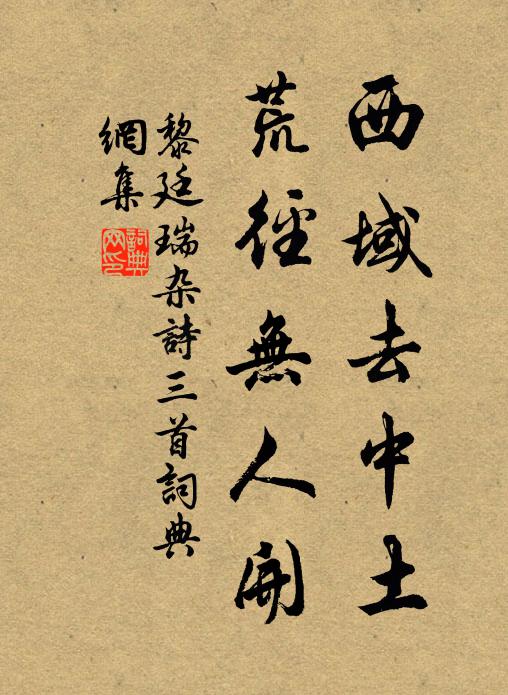 西域去中土
荒徑無人開
黎廷瑞杂詩三首詞典
網集
詞典
网印